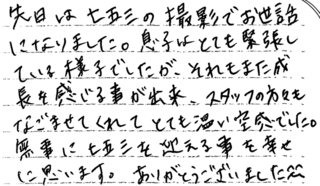 先日は七五三の撮影でお世話
になりました。息子はとても緊張し
ている様子でしたが、それもまた成
長を感じる事が出来、スタッフの方々も
なごませてくれてとても温い空感でした。
無事に七五三を迎える事を幸せ
に思います。ありがとうございました